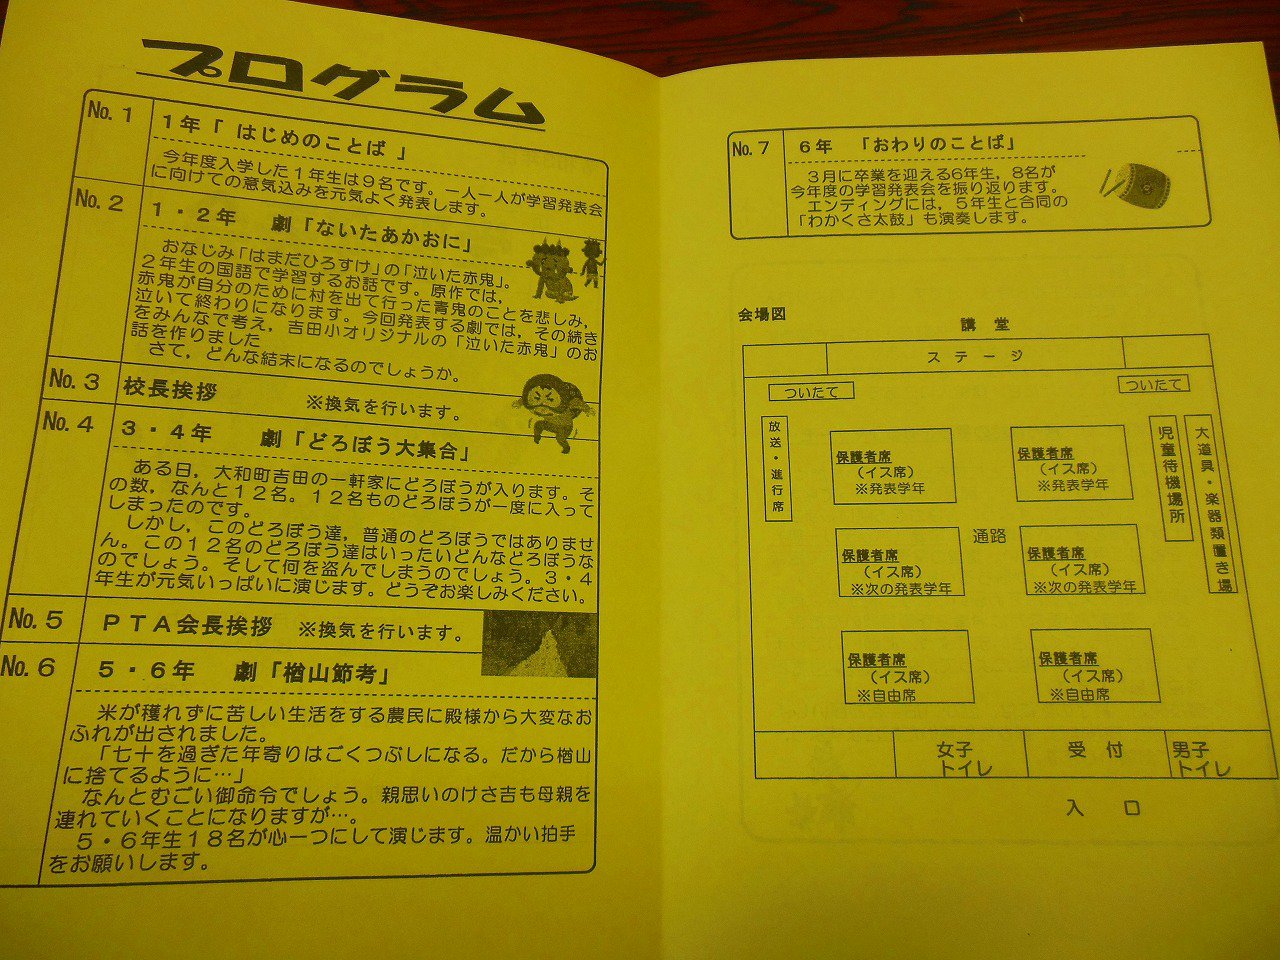 プログラム
No. 1
1年「 はじめのことば 」
今年度入学した1年生は9名です。一人一人が学習発表会
に向けての意気込みを元気よく発表します。
No. 2
1・2年 劇「ないたあかおに」
おなじみ「はまだひろすけ」の「泣いた赤鬼」。
2年生の国語で学習するお話です。原作では,
赤鬼が自分のために村を出て行った青鬼のことを悲しみ,
泣いて終わりになります。今回発表する劇では,その続き
をみんなで考え,吉田小オリジナルの「泣いた赤鬼」のお
話を作りました
さて,どんな結末になるのでしょうか。
No. 3
校長挨拶 ※換気を行います。
No. 4
3・4年 劇「どろぼう大集合」
ある日,大和町吉田の一軒家にどろぼうが入ります。そ
の数,なんと12名。12名ものどろぼうが一度に入って
しまったのです。
しかし,このどろぼう達,普通のどろぼうではありませ
ん。この12名のどろぼう達はいったいどんなどろぼうな
のでしょう。そして何を盗んでしまうのでしょう。3・4
年生が元気いっぱいに演じます。どうぞお楽しみください。
No. 5
PTA会長挨拶 ※換気を行います。
No. 6
5・6年 劇「楢山節考」
米が穫れずに苦しい生活をする農民に殿様から大変なお
ふれが出されました。
「七十を過ぎた年寄りはごくつぶしになる。だから楢山
に捨てるように…」
なんとむごい御命令でしょう。親思いのけさ吉も母親を
連れていくことになりますが…。
5・6年生18名が心一つにして演じます。温かい拍手
をお願いします。
No. 7
6年 「おわりのことば」
3月に卒業を迎える6年生,8名が
今年度の学習発表会を振り返ります。
エンディングには,5年生と合同の
「わかくさ太鼓」も演奏します。
会場図
講堂
ステージ
ついたて
ついたて
放送・進行席
保護者席
(イス席)
※発表学年
保護者席
(イス席)
※発表学年
児童待機場所
大道具・楽器類置き場
通路
保護者席
(イス席)
※次の発表学年
保護者席
(イス席)
※次の発表学年
保護者席
(イス席)
※自由席
保護者席
(イス席)
※自由席
女子
トイレ
受 付
男子
トイレ
入 口